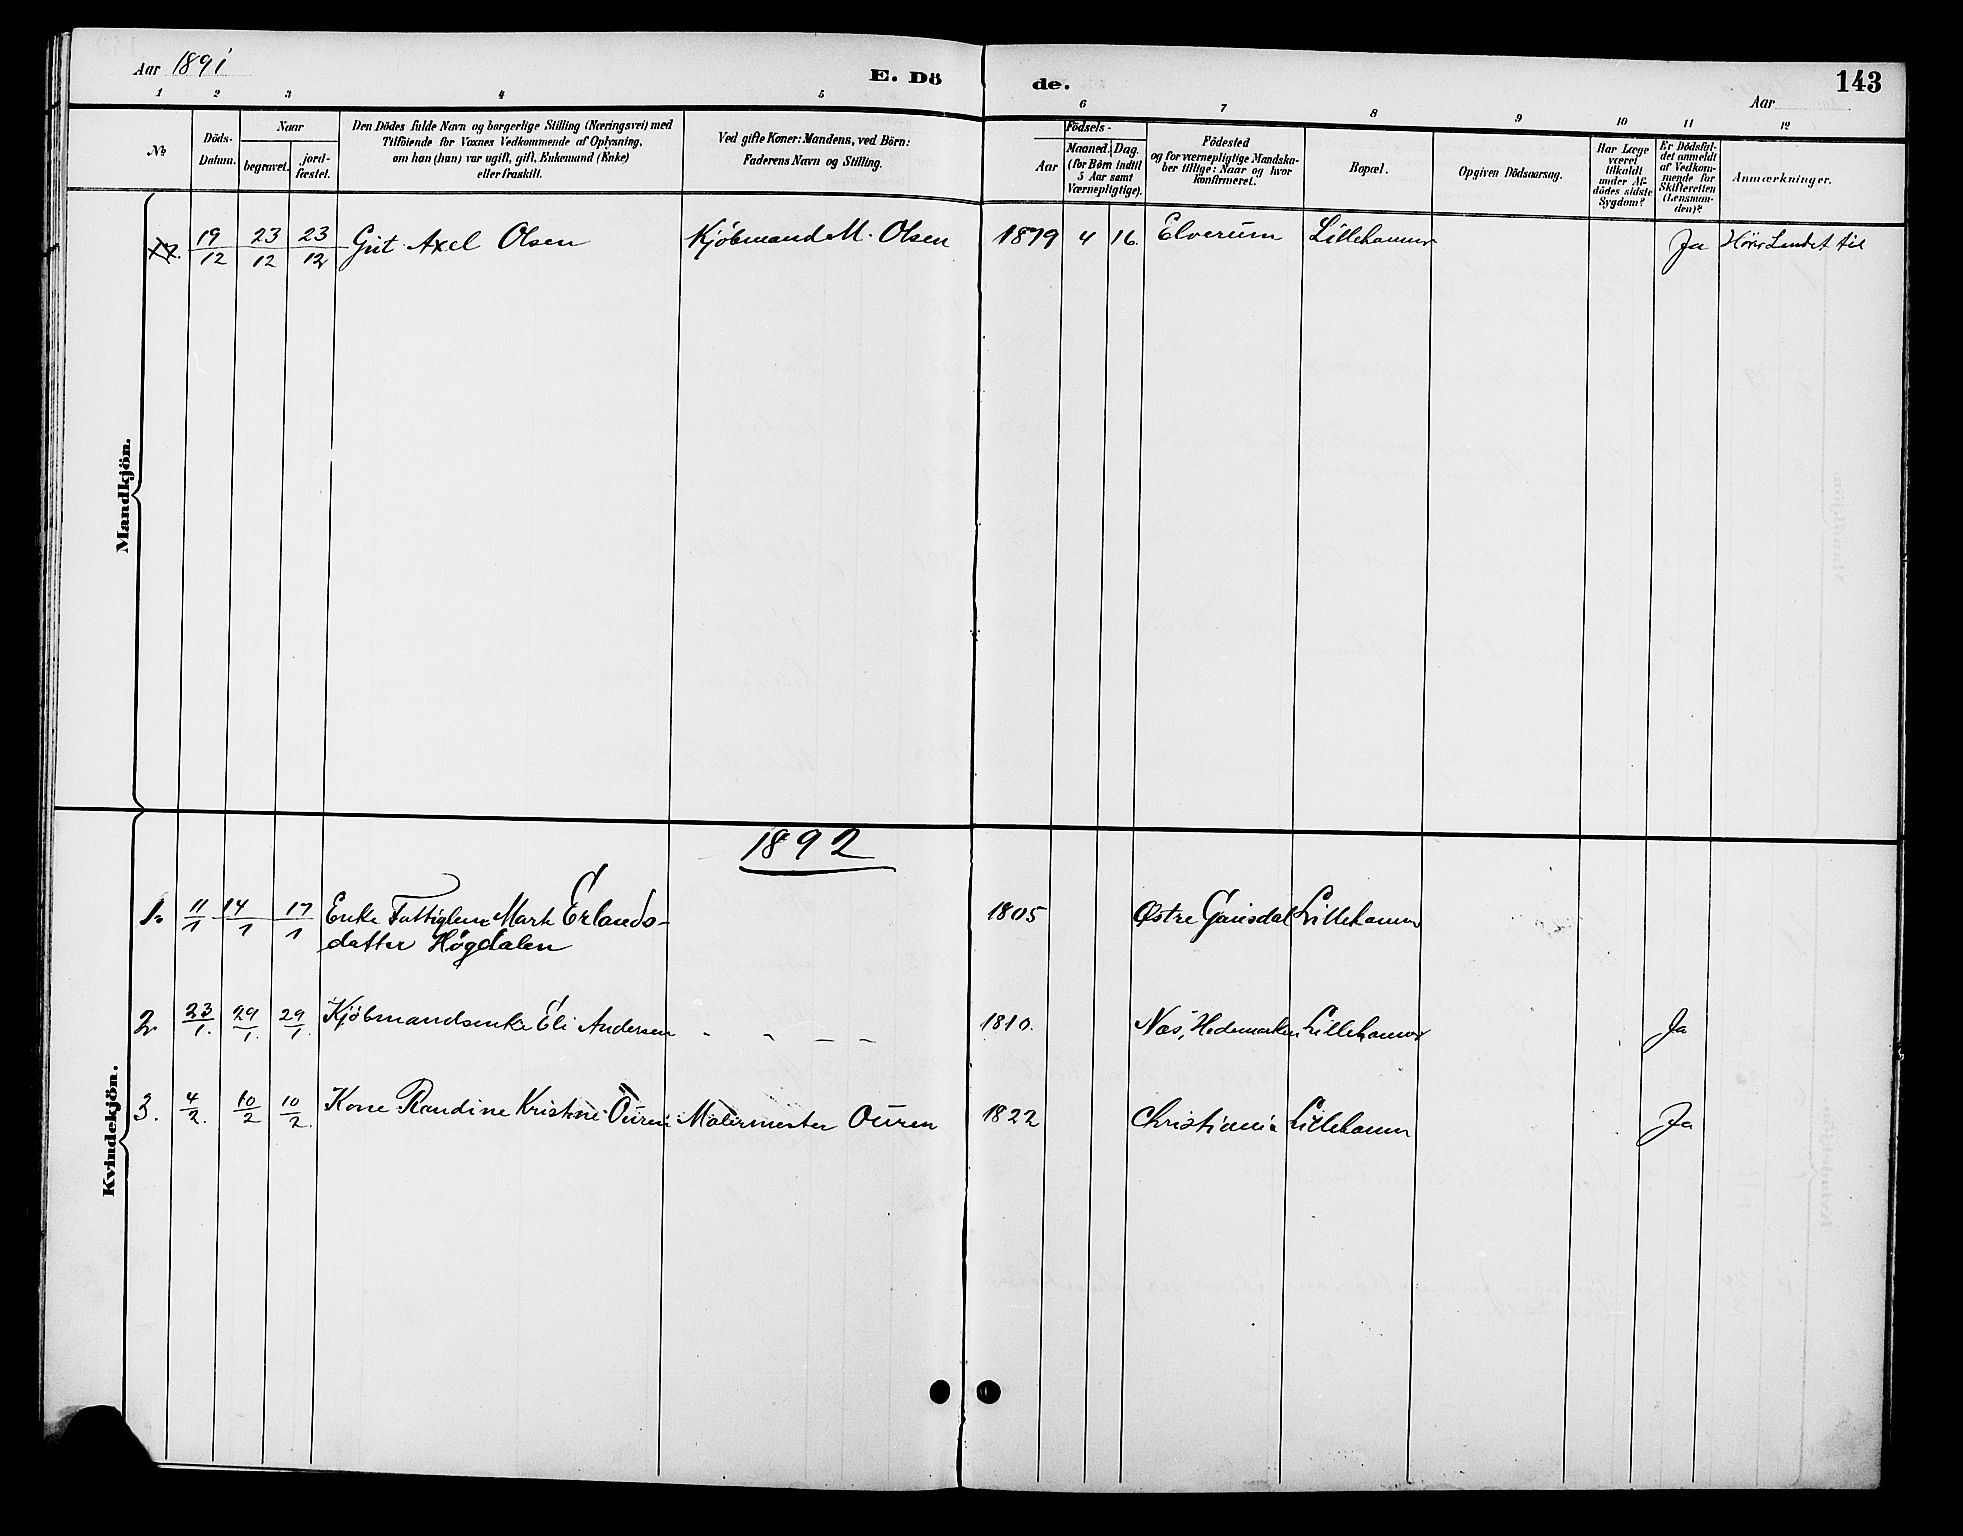 Aar 1891
E. Dö
de.
143
Aar
1 2 3 4 5 6 7 8 9 10 11 12
No
Döds-
Datum.
Naar
begravet.
jord-
fæstet.
Den Dödes fulde Navn og borgerlige Stilling (Næringsvei) med
Tilföiende for Voxnes Vedkommende af Oplysning,
om han (hun) var ugift, gift, Enkemand (Enke)
eller fraskilt.
Ved gifte Koner: Mandens, ved Börn:
Faderens Navn og Stilling.
Födsels-
Aar
Maaned.
Dag.
(for Börn indtil
5 Aar samt
Værnepligtige).
Födested
og for værnepligtige Mandska-
ber tillige: Naar og hvor
konfirmeret.
Bopæl.
Opgiven Dödsaarsag.
Har Læge
været
tilkaldt
under Af-
dödes sidste
Sygdom?
Er Dödsfal-
det anmeldt
af Vedkom-
mende for
Skifteretten
(Lensman-
den)?
Anmærkninger.
Mandkjön.
19/12 23/12 23/12 Gut Axel Olsen Kjöbmand M. Olsen 1879 4 16. Elverum Lillehammer Ja Hörer Landet til
1892
Kvindekjön.
1. 11/1 14/1 17/1 Enke Fattiglem Marh Erlands- 1805 Østre Gausdal Lillehammer
datter Høgdalen
2. 23/1. 29/1. 29/1. Kjöbmandsenke Eli Andersen - - - - 1810. Næs, Hedemarken Lillehammer Ja
3. 4/2. 10/2 10/2. Kone Randine Kristine Ouren Malermester Ouren 1822 Christiania Lillehammer Ja